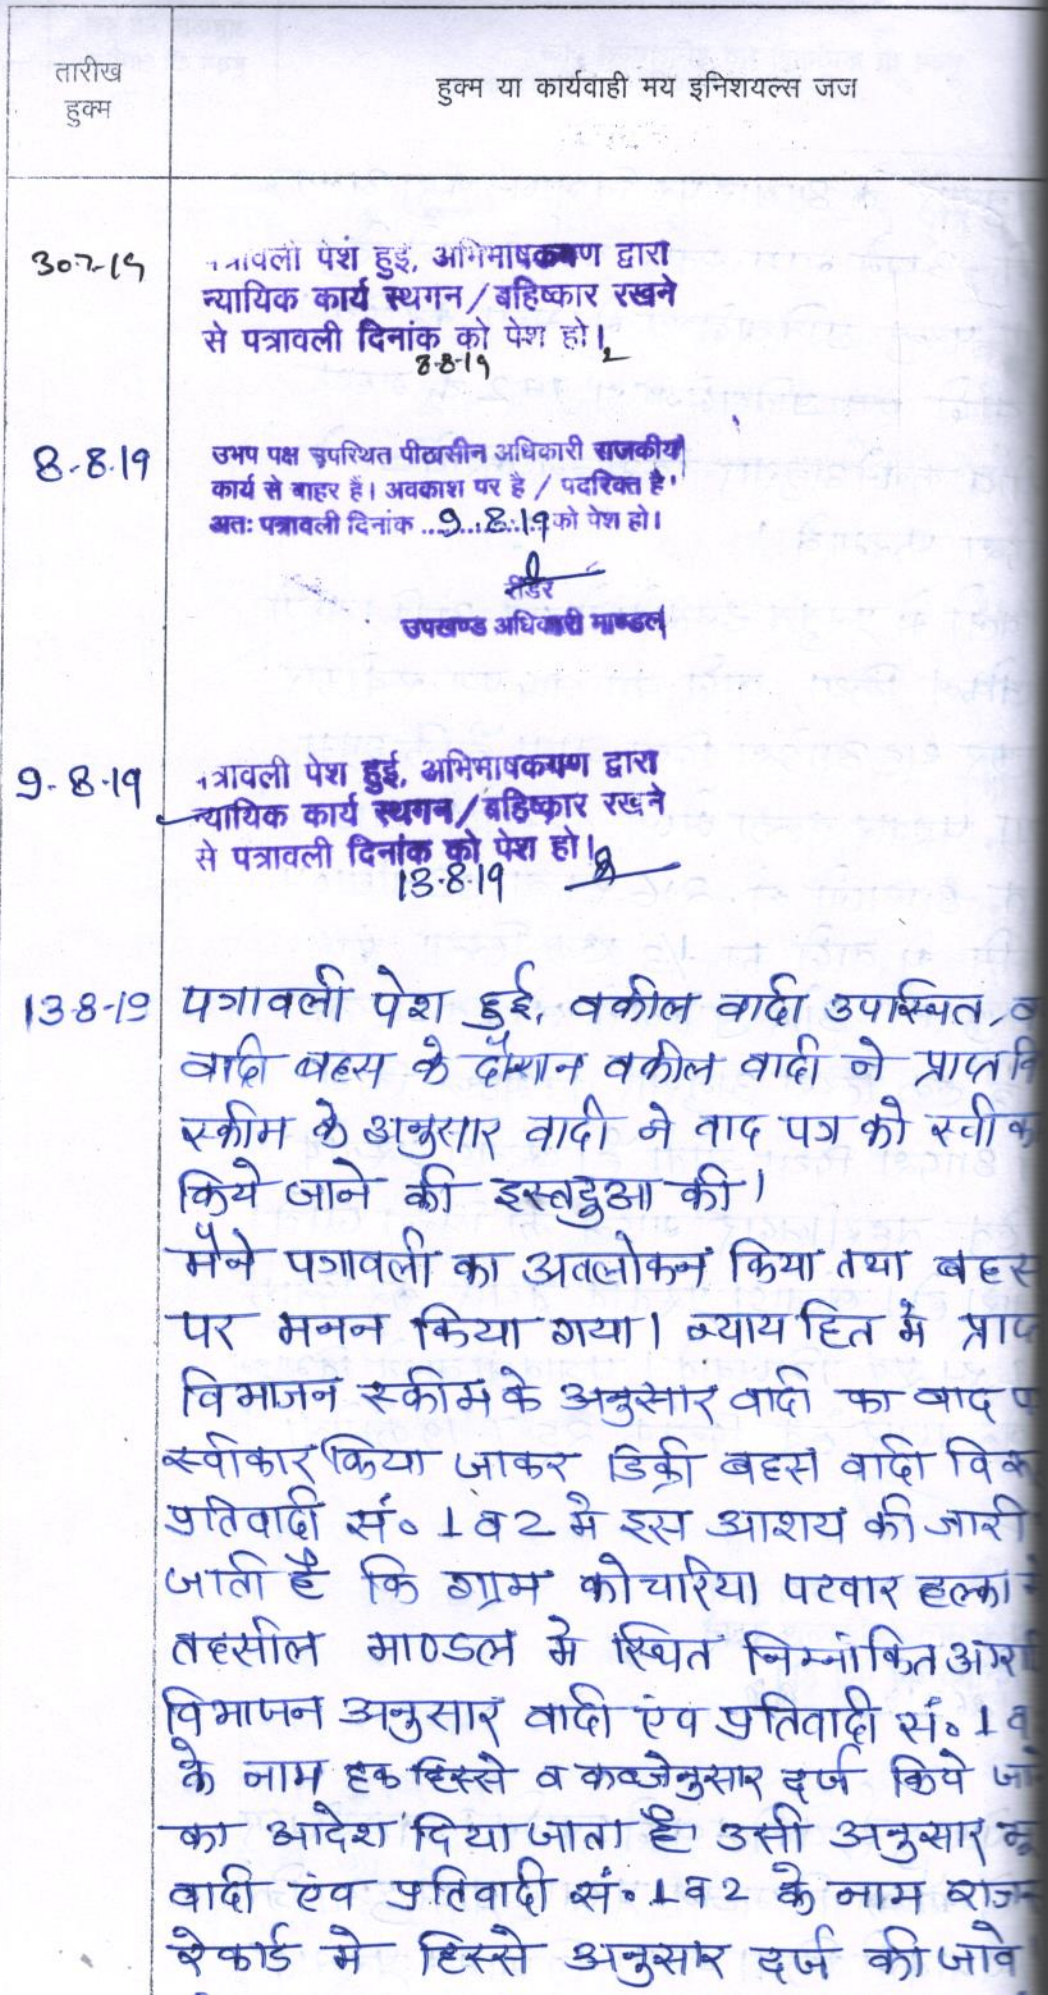 तारीख
हुक्म
हुक्म या कार्यवाही मय इनिशयल्स जज
30-7-19
पत्रावली पेश हुई, अभिभाषकगण द्वारा
न्यायिक कार्य स्थगन/बहिष्कार रखने
से पत्रावली दिनांक को पेश हो।
8-8-19
8-8-19
उभय पक्ष उपस्थित पीठासीन अधिकारी राजकीय
कार्य से बाहर है। अवकाश पर है / पदरिक्त है
अतः पत्रावली दिनांक ..9..8..19 को पेश हो।
रीडर
उपखण्ड अधिकारी माण्डल
9-8-19
पत्रावली पेश हुई, अभिभाषकगण द्वारा
न्यायिक कार्य स्थगन/बहिष्कार रखने
से पत्रावली दिनांक को पेश हो।
13-8-19
13-8-19
पत्रावली पेश हुई, वकील वादी उपस्थित,
वादी बहस के दौरान वकील वादी ने प्राप्त
स्कीम के अनुसार वादी ने वाद पत्र को
किये जाने की इस्तदुआ की।
मैने पत्रावली का अवलोकन किया तथा बहस
पर मनन किया गया। न्याय हित मे
विभाजन स्कीम के अनुसार वादी का वाद
स्वीकार किया जाकर डिक्री बहस वादी
प्रतिवादी सं० 1 व 2 मे इस आशय की जारी
जाती है कि ग्राम कोचरिया पटवार हल्का
तहसील माण्डल मे स्थित निम्नांकित
विभाजन अनुसार वादी एंव प्रतिवादी सं० 1 व
के नाम हक हिस्से व कब्जेनुसार दर्ज किये
का आदेश दिया जाता है। उसी अनुसार
वादी एंव प्रतिवादी सं० 1 व 2 के नाम
रेकार्ड मे हिस्से अनुसार दर्ज की जावे